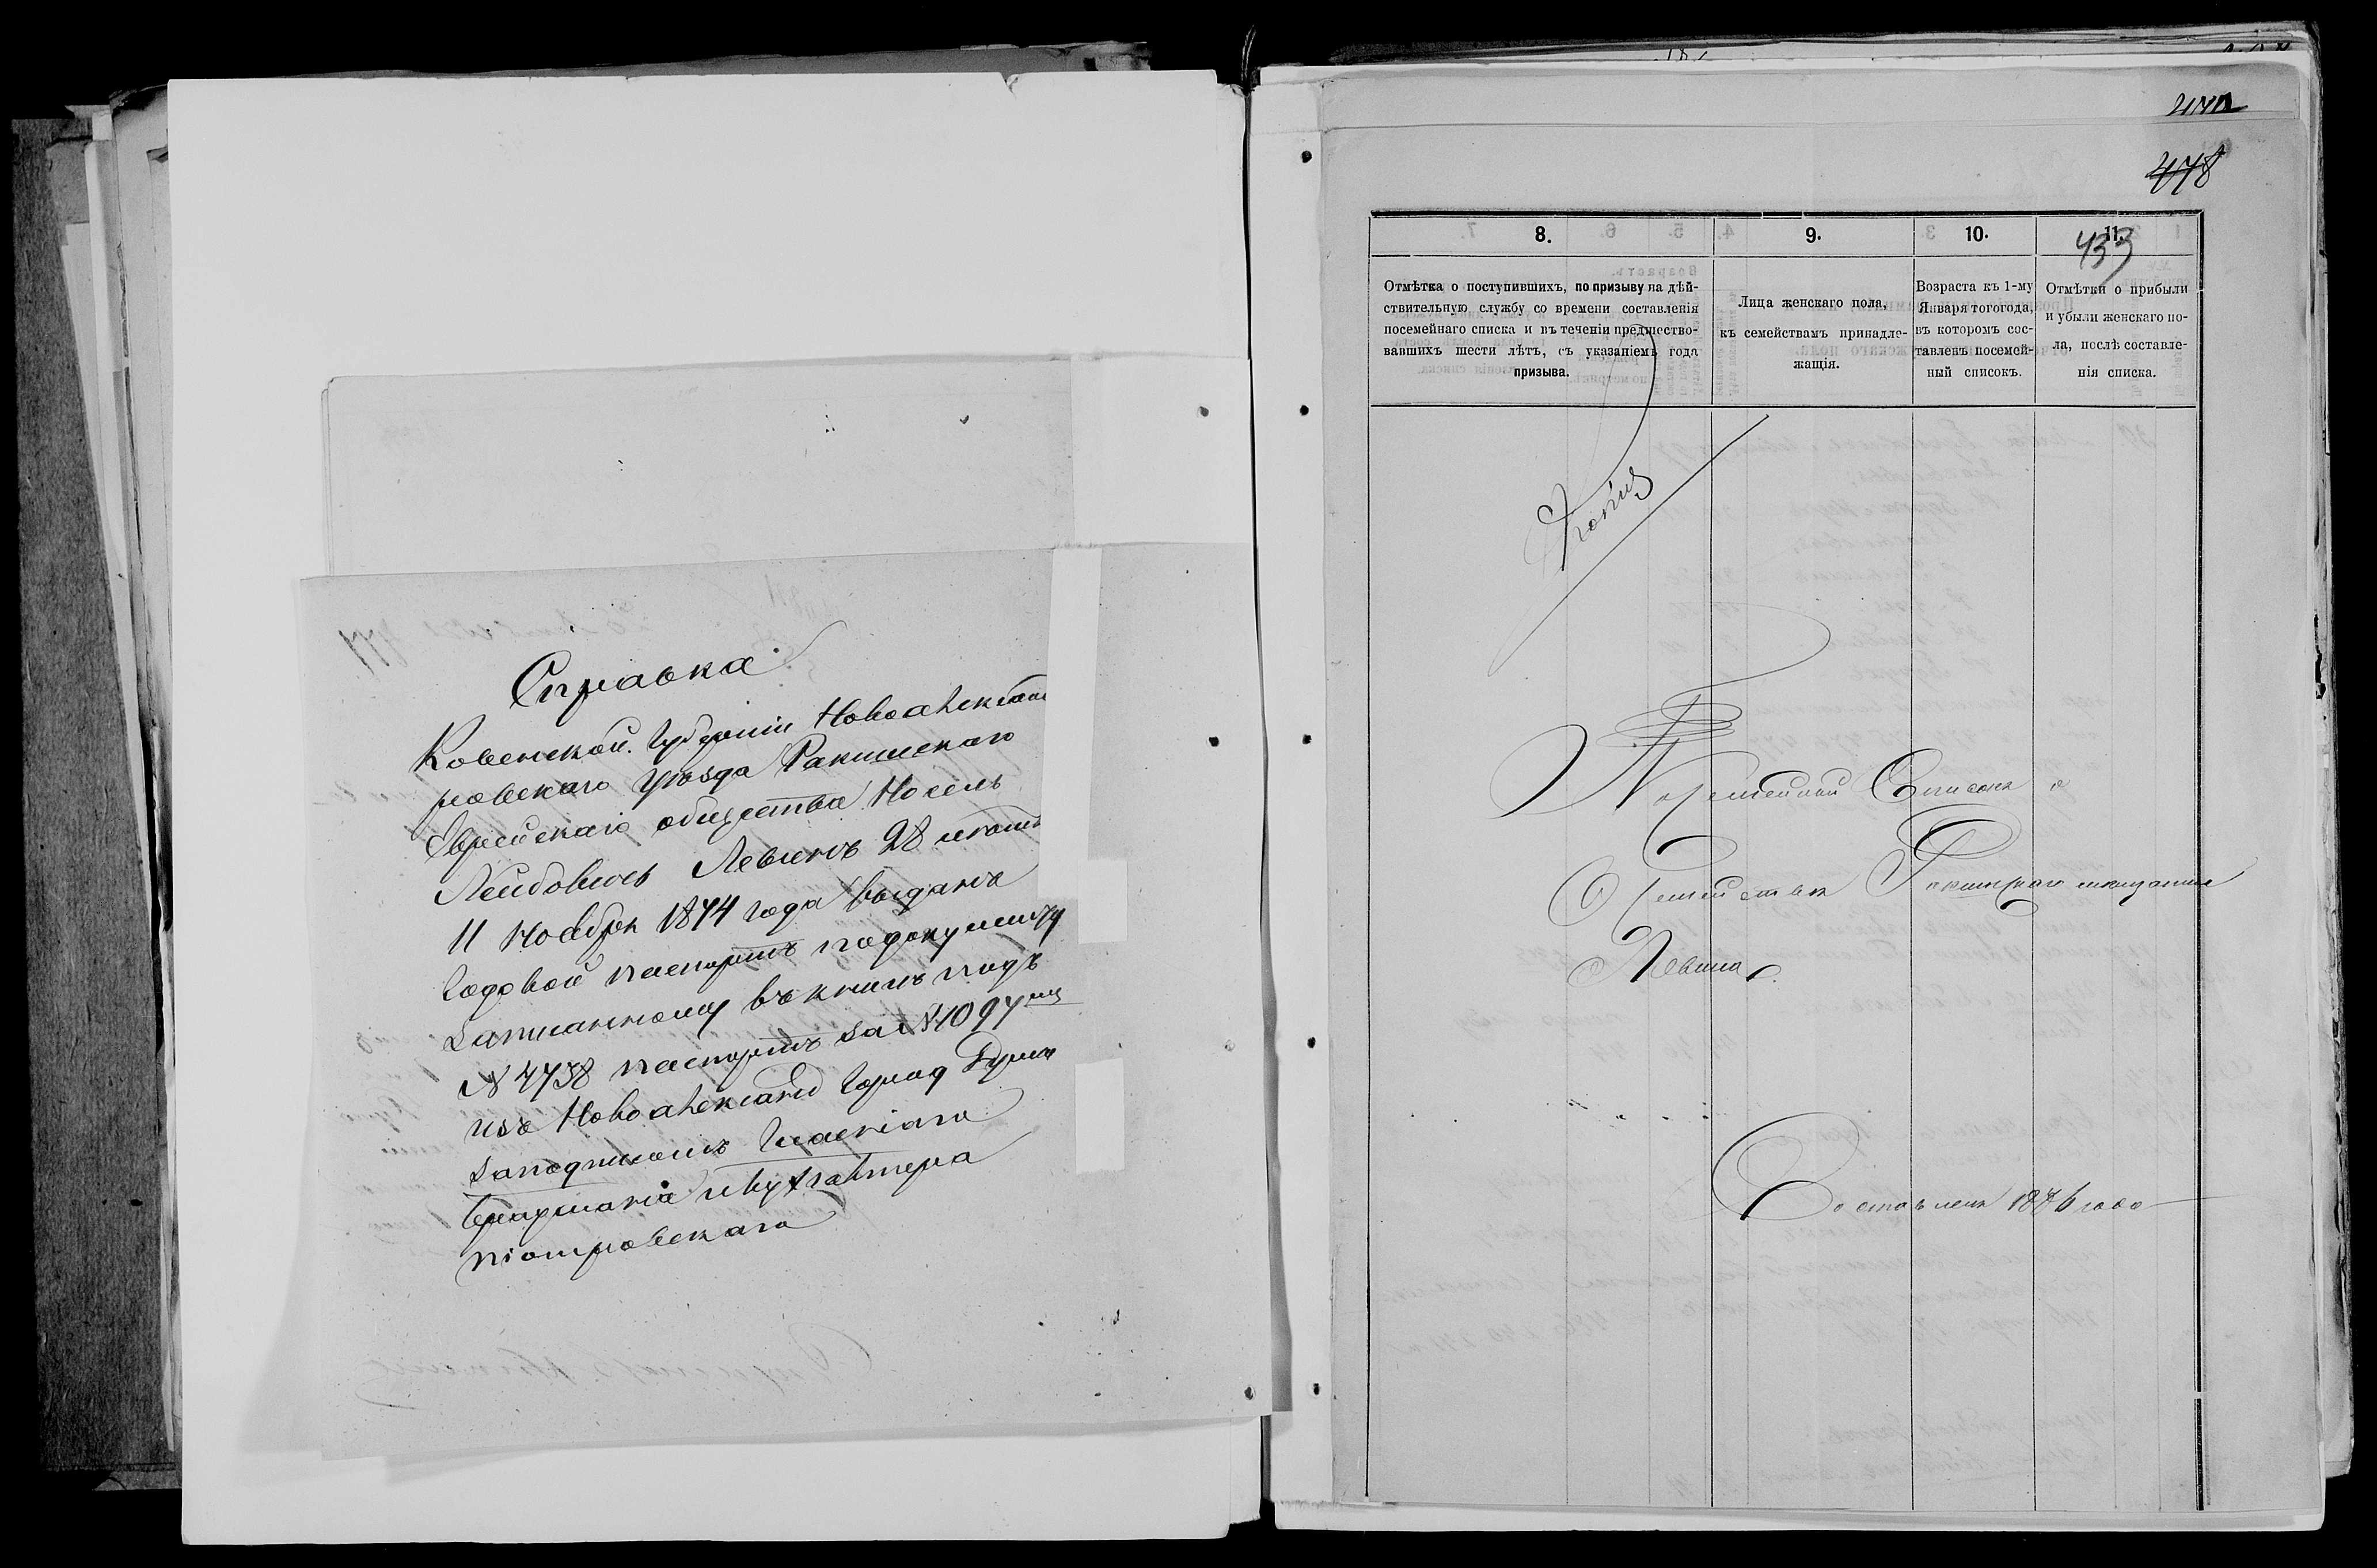 Справка
Ковенской Губерніи Новоалександ
ровскаго уѣзда Ракишскаго
Еврейскаго общества Носель
Лейбовичъ Левинъ 28 лѣтъ
11 Ноября 1874 года выданъ
Годовой паспортъ подокументу
Записанному въ книгѣ подъ
№ 4738 паспортъ за №
изъ Новоалександ Город Думы
Заподписомъ Гласнаго
и бухгалтера
Піотровскаго
478
433
8.
9.
10.
11.
Отмѣтка о поступившихъ, по призыву на дѣй-
ствительную службу со времени составленія
посемейнаго списка и въ теченіи предшество-
вавшихъ шести лѣтъ, съ указаніемъ года
призыва.
Лица женскаго пола,
къ семействамъ принадле-
жащія.
Возраста къ 1-му
Января тогогода,
въ которомъ сос-
тавленъ посемей-
ный списокъ.
Отмѣтки о прибыли
и убыли женскаго по-
ла, послѣ составле-
нія списка.
Копія
Посемейный Списокъ о
Семействѣ Ракишскаго мещанина
Левина
Составленъ 1876 года